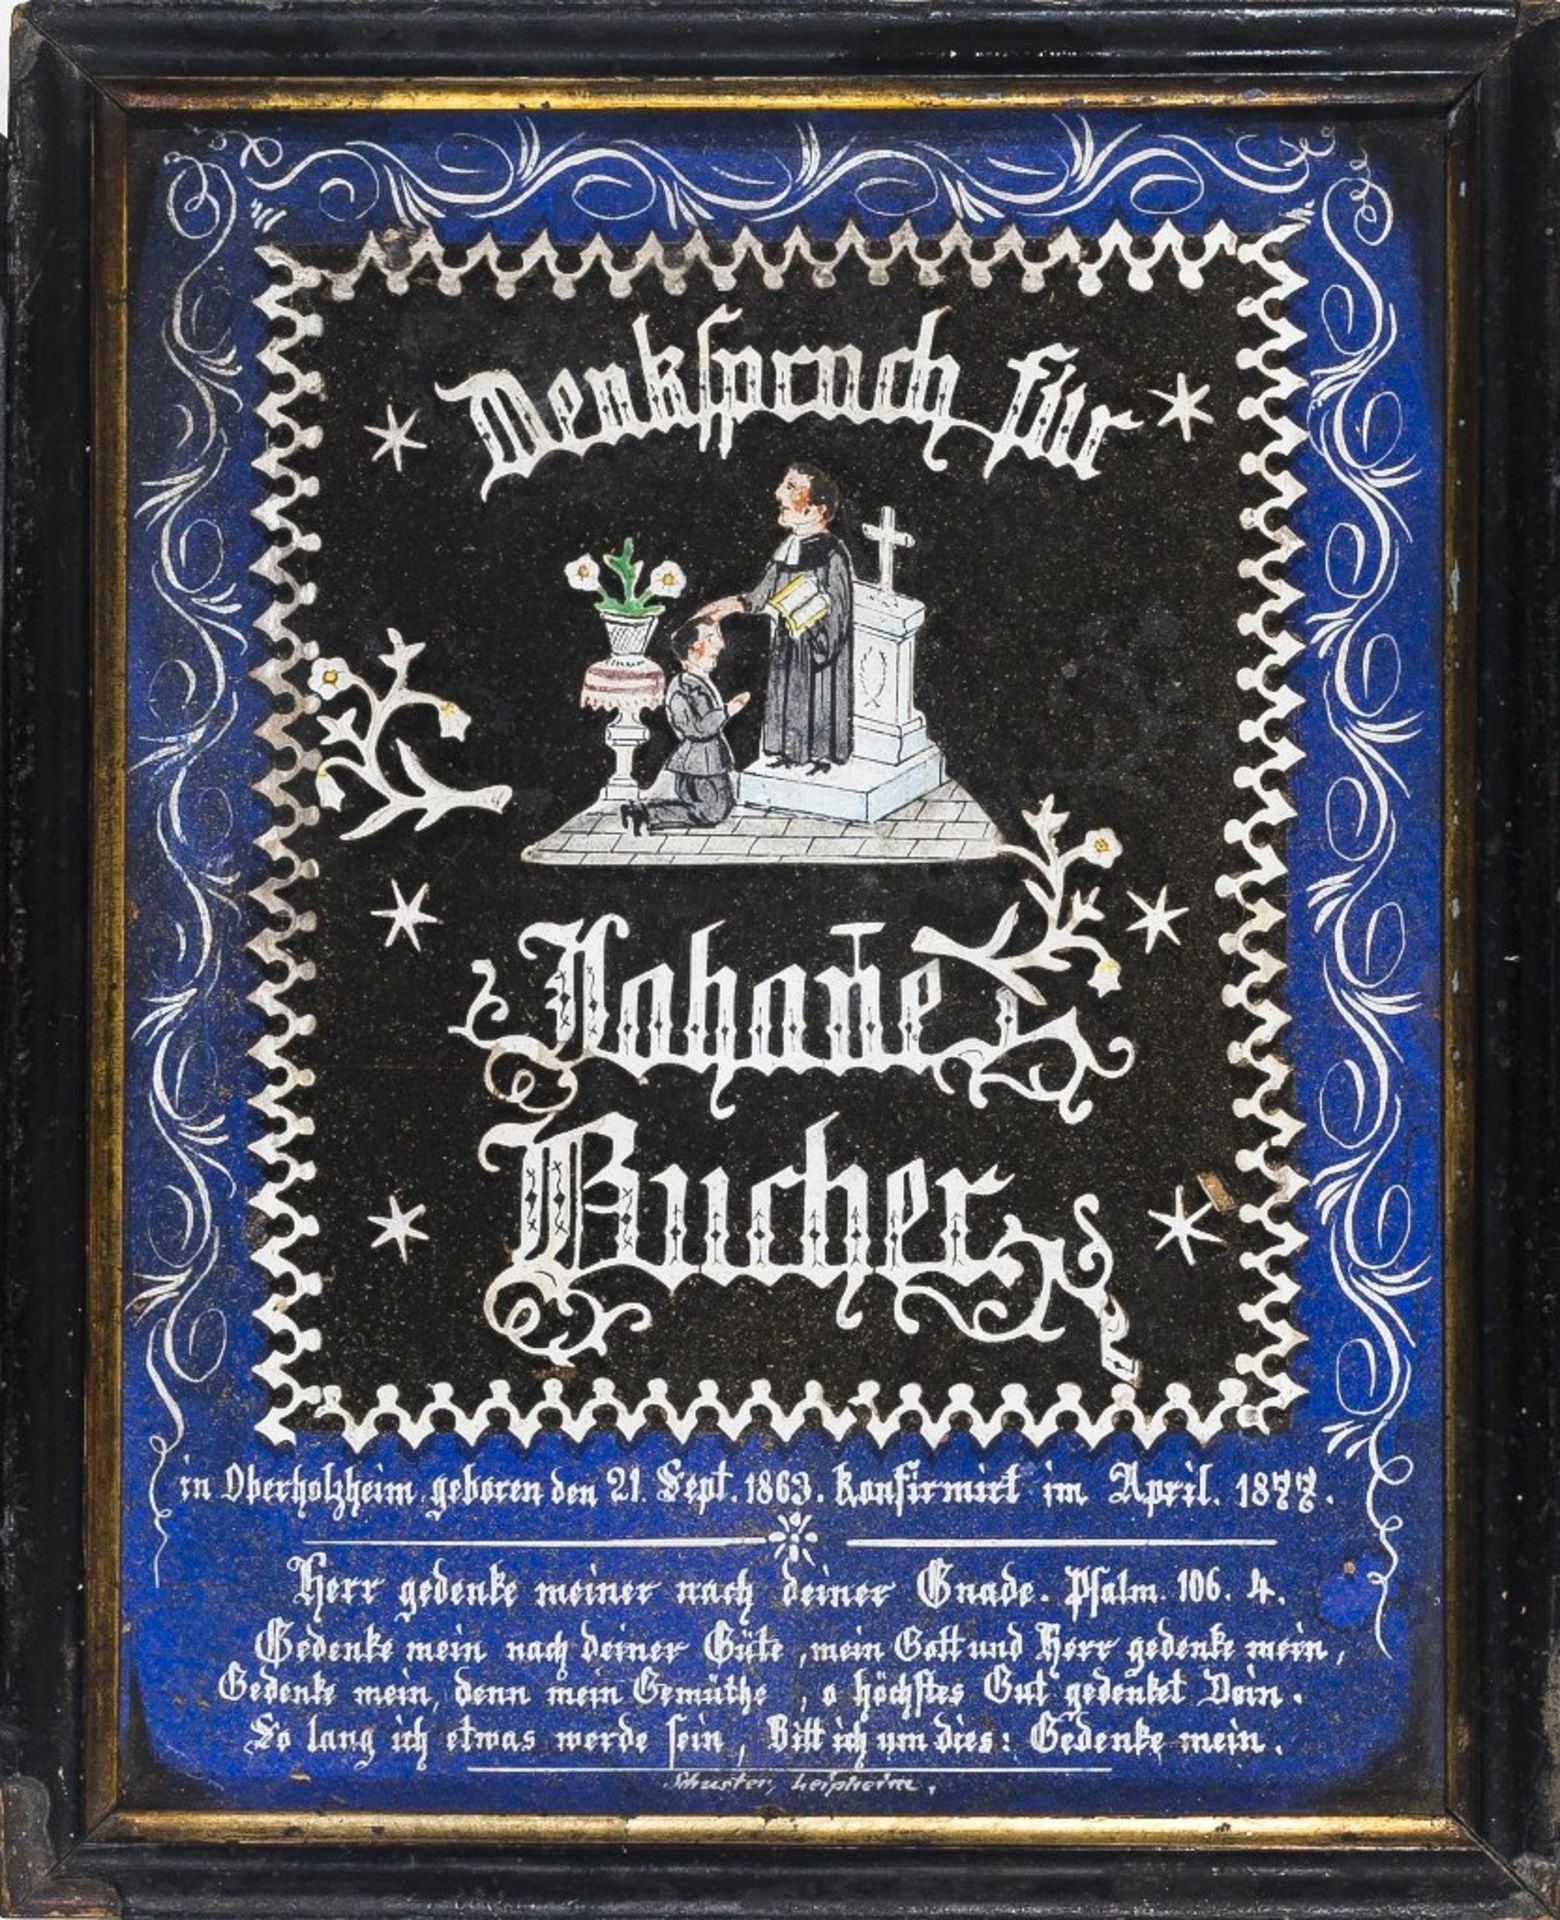 Denkspruch für
Johan̄e
Bucher
in Oberholzheim, geboren den 21. Sept. 1863. Konfirmirt im April. 1877.
Herr gedenke meiner nach deiner Gnade. Psalm. 106. 4.
Gedenke mein nach deiner Güte, mein Gott und Herr gedenke mein,
Gedenke mein, denn mein Gemüthe, o höchstes Gut gedenket Dein.
So lang ich etwas werde sein, Bitt ich um dies: Gedenke mein.
Schuster, Leipheim.